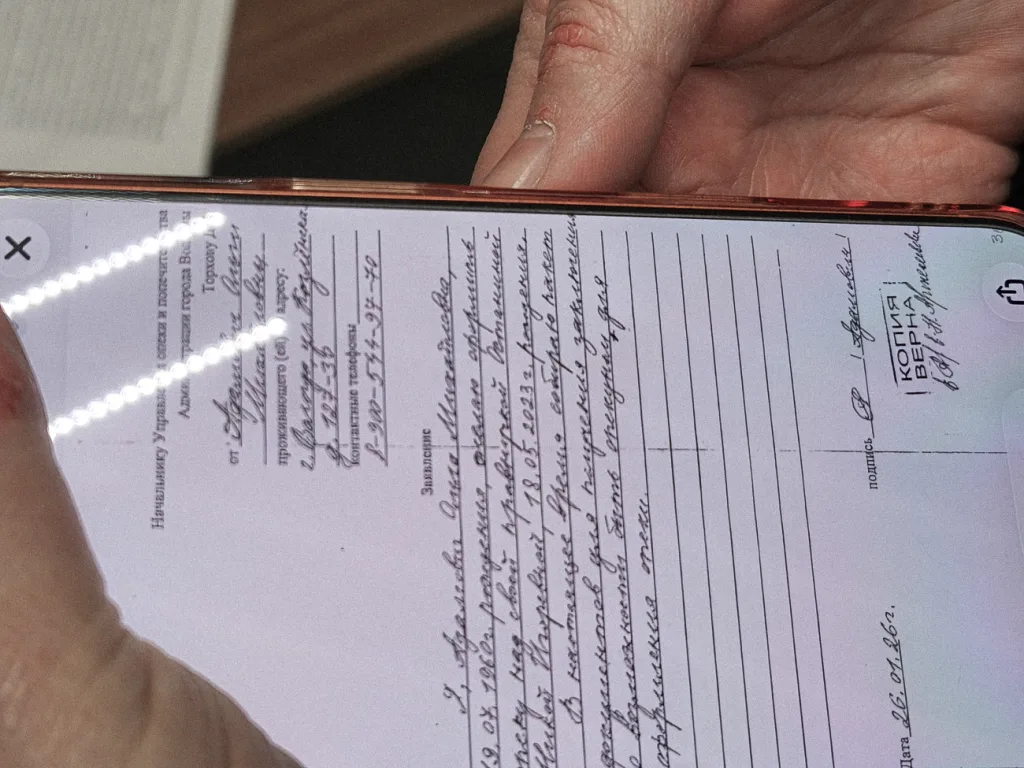 Начальнику Управления опеки и попечительства
Администрации города Вологды
Торхову
от
Михайловны
проживающего (ей) по адресу:
г. Вологда ул.
д. 127-36
контактные телефоны
8-900-544-97-70
Заявление
Я, Ольга Михайловна,
19.07.1960г. рождения, желаю оформить
опеку над своей правнучкой
Игоревной, 18.05.2023 г. рождения.
В настоящее время собираю пакет
документов для получения заключения
о возможности быть опекуном, для
оформления опеки.
Дата 26.01.26г.
подпись
КОПИЯ
ВЕРНА
31